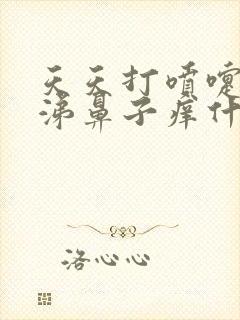 天天打喷嚏
涕鼻子痒什
洛心心